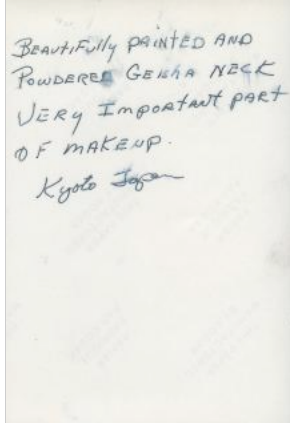 BEAUTIFUlly PAINTED AND
POWDERED GEISHA NECK
VERY IMPORTANT PART
OF MAKEUP.
Kyoto Japan